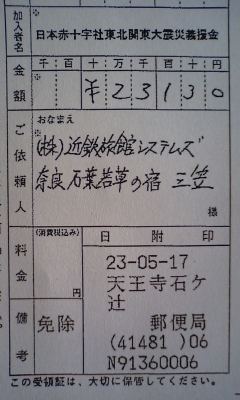 加入者名
※
日本赤十字社東北関東大震災義援金
金額
千 百 十 万 千 百 十 円
※
¥ 2 3 1 3 0
ご依頼人
おなまえ
※
(株)近鉄旅館システムズ
奈良 若草の宿 三笠
様
料金
(消費税込み)
円
備考
免除
日附印
23-05-17
天王寺石ケ
辻
郵便局
(41481 )06
N91360006
この受領証は、大切に保管してください。